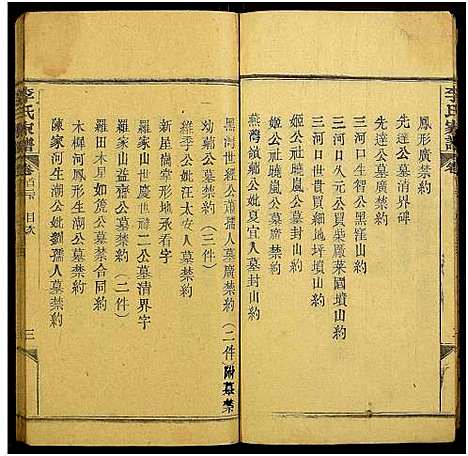 李氏家譜
卷
鳳形廣禁約
先達公墓清界碑
先達公墓廣禁約
三河口生智公黑窪山約
三河口久元公買柴厰萊園墳山約
三河口世貴公買細地坪墳山約
姬公社曉嵐公墓封山約
姬公社曉嵐公墓禁約
燕灣嶺輔公妣夏宜人墓封山約
黑灣世經公蕭孺人墓廣禁約（二件）附墓禁
幼輔公墓禁約（三件）
維季公妣汪太安人墓禁約
新屋衕掌形地承看字
羅家山世慶世祥二公墓清界字
羅家山益齋公墓禁約（二件）
羅田木星如篪公墓禁合同約
木樨河鳳形生潮公墓禁約
陳家河生潮公妣劉孺人墓禁約
李氏家譜
卷首
目次
三